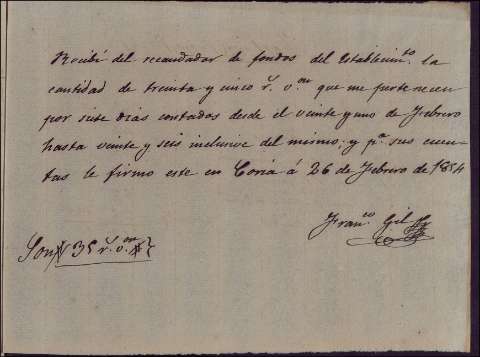 Recibí del recaudador de fondos del Establecim.to la
cantidad de treinta y cinco r.s v.on que me pertenecen
por siete dias contados desde el veinte y uno de Febrero
hasta veinte y seis inclusive del mismo. y p.a sus cuen-
tas le firmo este en Coria á 26 de Febrero de 1854
Fran.co Gil
Son 35 r.s v.on